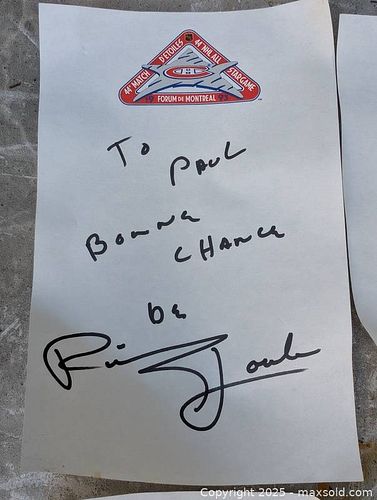 44e MATCH D'ETOILES 44th NHL ALL STAR GAME
NHL
19 FORUM DE MONTREAL 93
TO
PAUL
BONNE
CHANCE
DE
Copyright 2025 - maxsold.com